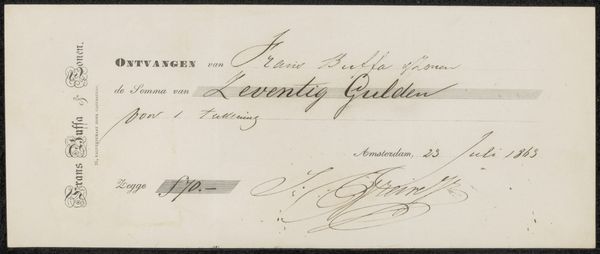 Frans Buffa & Zonen.
ONTVANGEN van Frans Buffa & Zonen
de Somma van Zeventig Gulden
voor 1 teekening
Amsterdam, 23 Juli 1863
Zegge ƒ70.—